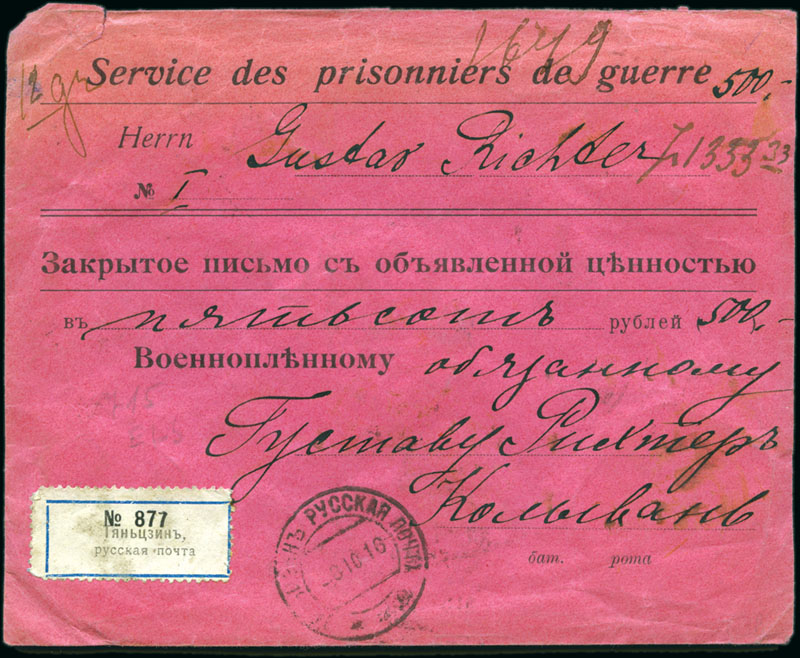 1679
12 gr
Service des prisonniers de guerre 500,-
Herrn Gustav Richter 1333 33
№ I
Закрытое письмо съ объявленной цѣнностью
въ пятьсотъ рублей 500,-
Военноплѣнному обязанному
Густаву Рихтеръ
Колывань
бат. рота
№ 877
Тяньцзинъ,
русская почта
РУССКАЯ ПОЧТА
10 16